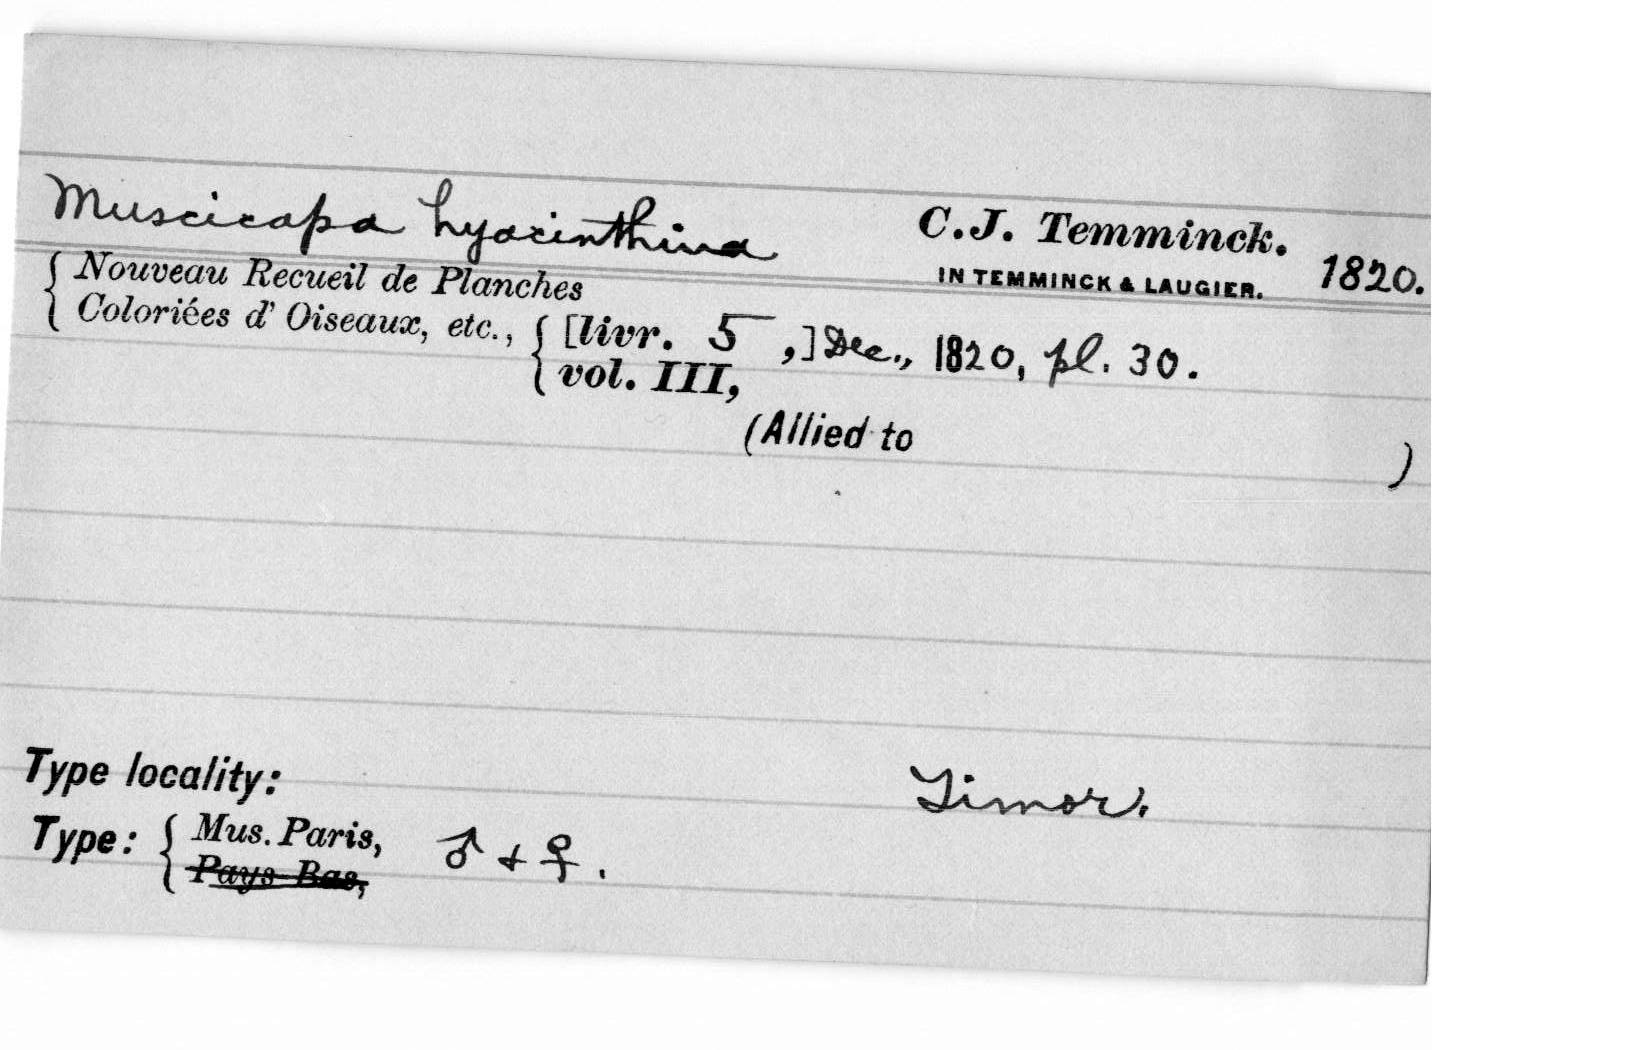 Muscicapa hyacinthina C.J. Temminck.
IN TEMMINCK & LAUGIER. 1820.
{ Nouveau Recueil de Planches
Coloriées d' Oiseaux, etc., { [livr. 5 ,] Dec., 1820, pl. 30.
vol. III,
(Allied to )
Type locality: Timor.
Type: { Mus. Paris, ♂ + ♀.
Pays-Bas,